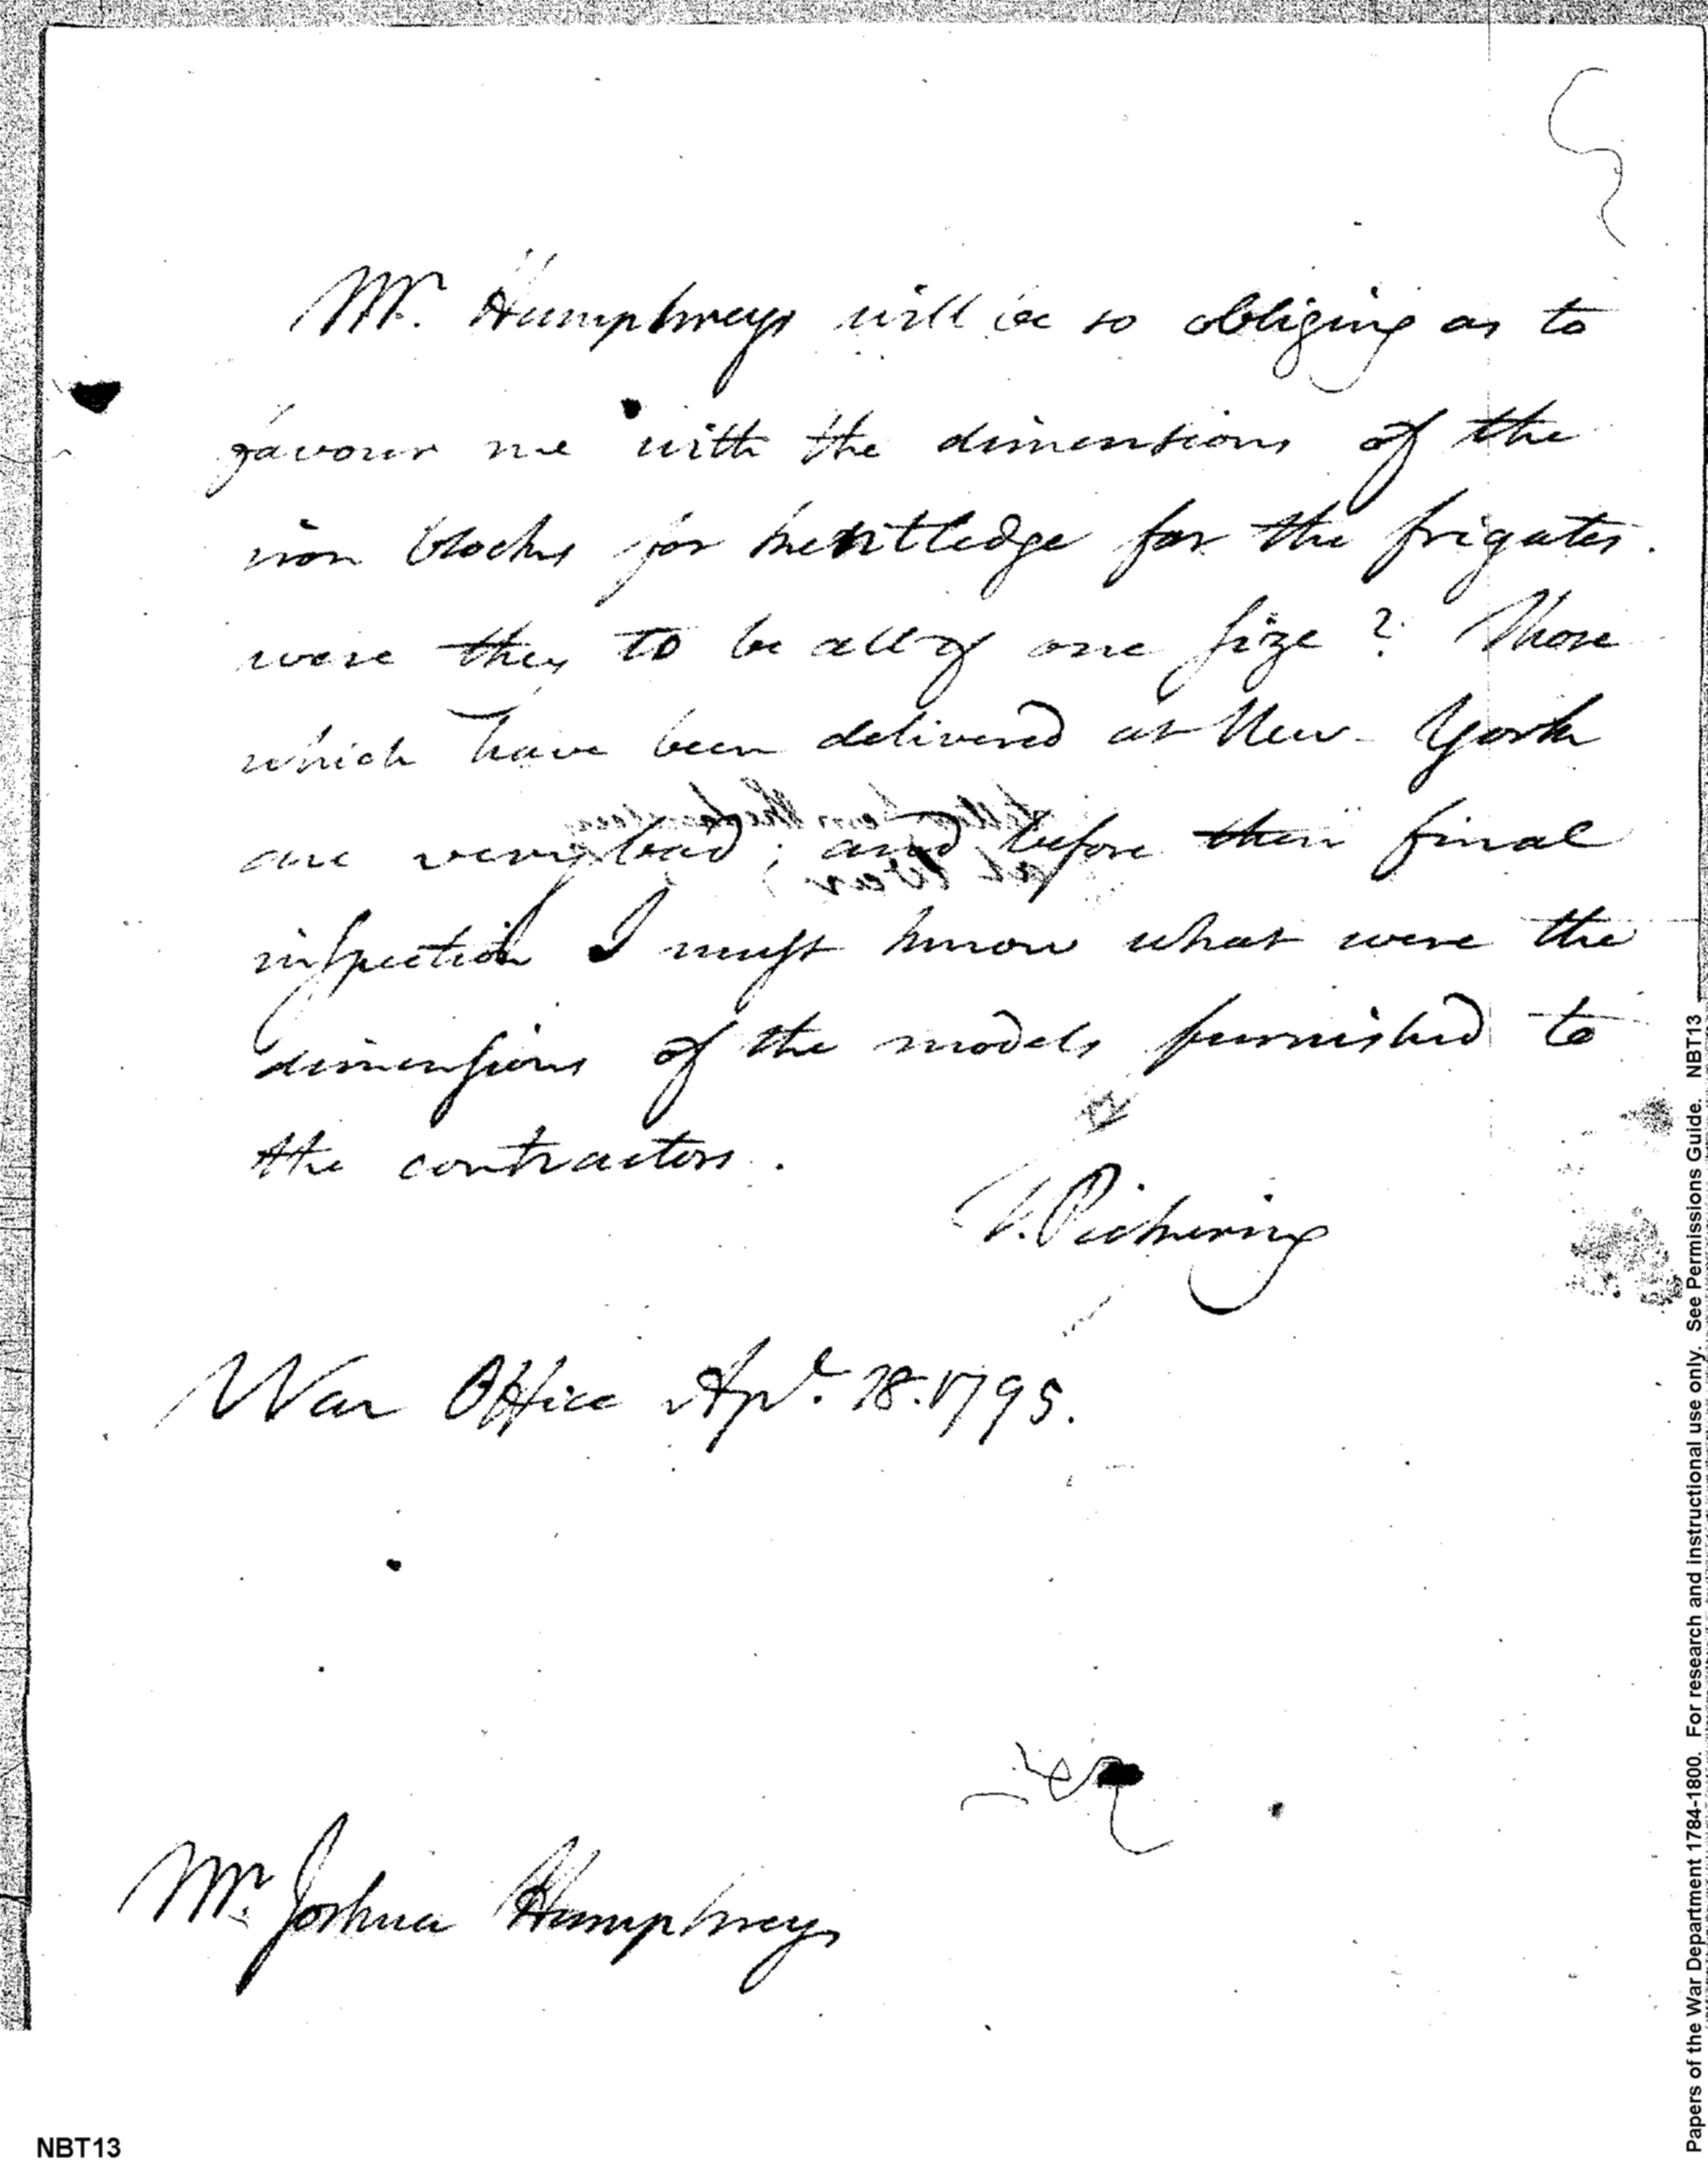 Mr. Humphreys will be so obliging as to
favour me with the dimensions of the
iron blocks for kentledge for the frigates.
were they to be all of one size? Those
which have been delivered at New-York
are very bad; and before their final
inspection I must know what were the
dimensions of the models furnished to
the contractors.
T. Pickering
War Office Apl. 18. 1795.
Mr. Joshua Humphreys
NBT13
Papers of the War Department 1784-1800. For research and instructional use only. See Permissions Guide. NBT13